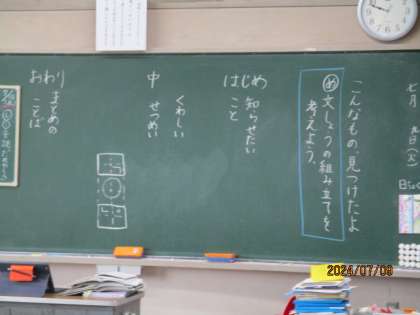 七月 日(火)
日ちょく
こんなもの、見つけたよ
め 文しょうの組み立てを
考えよう。
はじめ
知らせたい
こと
中
くわしい
せつめい
おわり
まとめの
ことば
2024/07/08